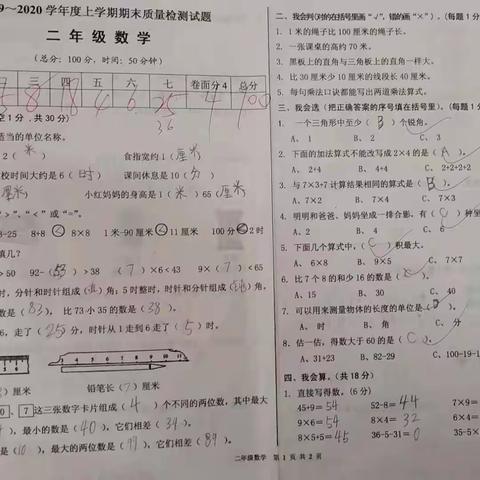 9～2020学年度上学期期末质量检测试题
二年级数学
（总分：100分，时间：50分钟）
二 三 四 五 六 七 卷面分4 总分
8 18 4 6 25 4 100
36
空1分，共30分）
适当的单位名称。
2（米） 食指宽约1（厘米）
校时间大约是6（时） 课间休息是10（分）
厘米） 小红妈妈的身高是1（米）65（厘米）
“>”、“<”或“=”。
8-25 8+8 < 8×8 1米-90厘米 < 11厘米 100分 < 2时
填几？
>50 92-（53）>38 （7）×6<43 9×（7）<65
时，分针和时针组成（直）角；5时整时，时针和分针组成（钝）角。
数是（83）。比73小35的数是（38）。
6，走了（25）分，时针从1走到6走了（5）时。
）厘米 铅笔长（7）厘米
0、7 这三张数字卡片组成（4）个不同的两位数，其中最大
），最小的数是（40），它们相差（34）。
是（10），最大的两位数是（99），它们相差（89）。
二、我会判（对的在括号里画“√”，错的画“×”）。（每题1分
1. 1米的绳子比100厘米的绳子长。
2. 一张课桌的高约70米。
3. 黑板上的直角与三角板上的直角一样大。
4. 比30厘米少10厘米的线段长40厘米。
5. 每句乘法口诀都能写出两道乘法算式。
三、我会选（把正确答案的序号填在括号里）。（每题1分
1. 一个三角形中至少（B）个锐角。
A、1 B、2 C、3
2. 下面的加法算式不能改写成2×4的是（A）。
A、2+4 B、4+4 C、2+2+2+2
3. 与7×3+7计算结果相同的算式是（B）。
A、7×2 B、7×4 C、7×3
4. 明明和爸爸、妈妈坐成一排合影，有（C）种坐
A、2 B、4 C、6
5. 下面几个算式中，（C）积最大。
A、6×8 B、9×5 C、7×7
6. 比7个8的和少16的数是（C）。
A、15 B、30 C、40
7. 可以用来测量物体的长度的单位是（B）。
A、时 B、角 C、分
8. 估一估，得数大于60的是（C）。
A、31+23 B、82-29 C、100-19-1
四、我会算。（共18分）
1. 直接写得数。（6分）
45+9=54 52-8=44 7×9=
9×6=54 8×4=32 6×4=
8×5+5=45 36-5-31=0 5×5-5=
二年级数学 第1页共2页